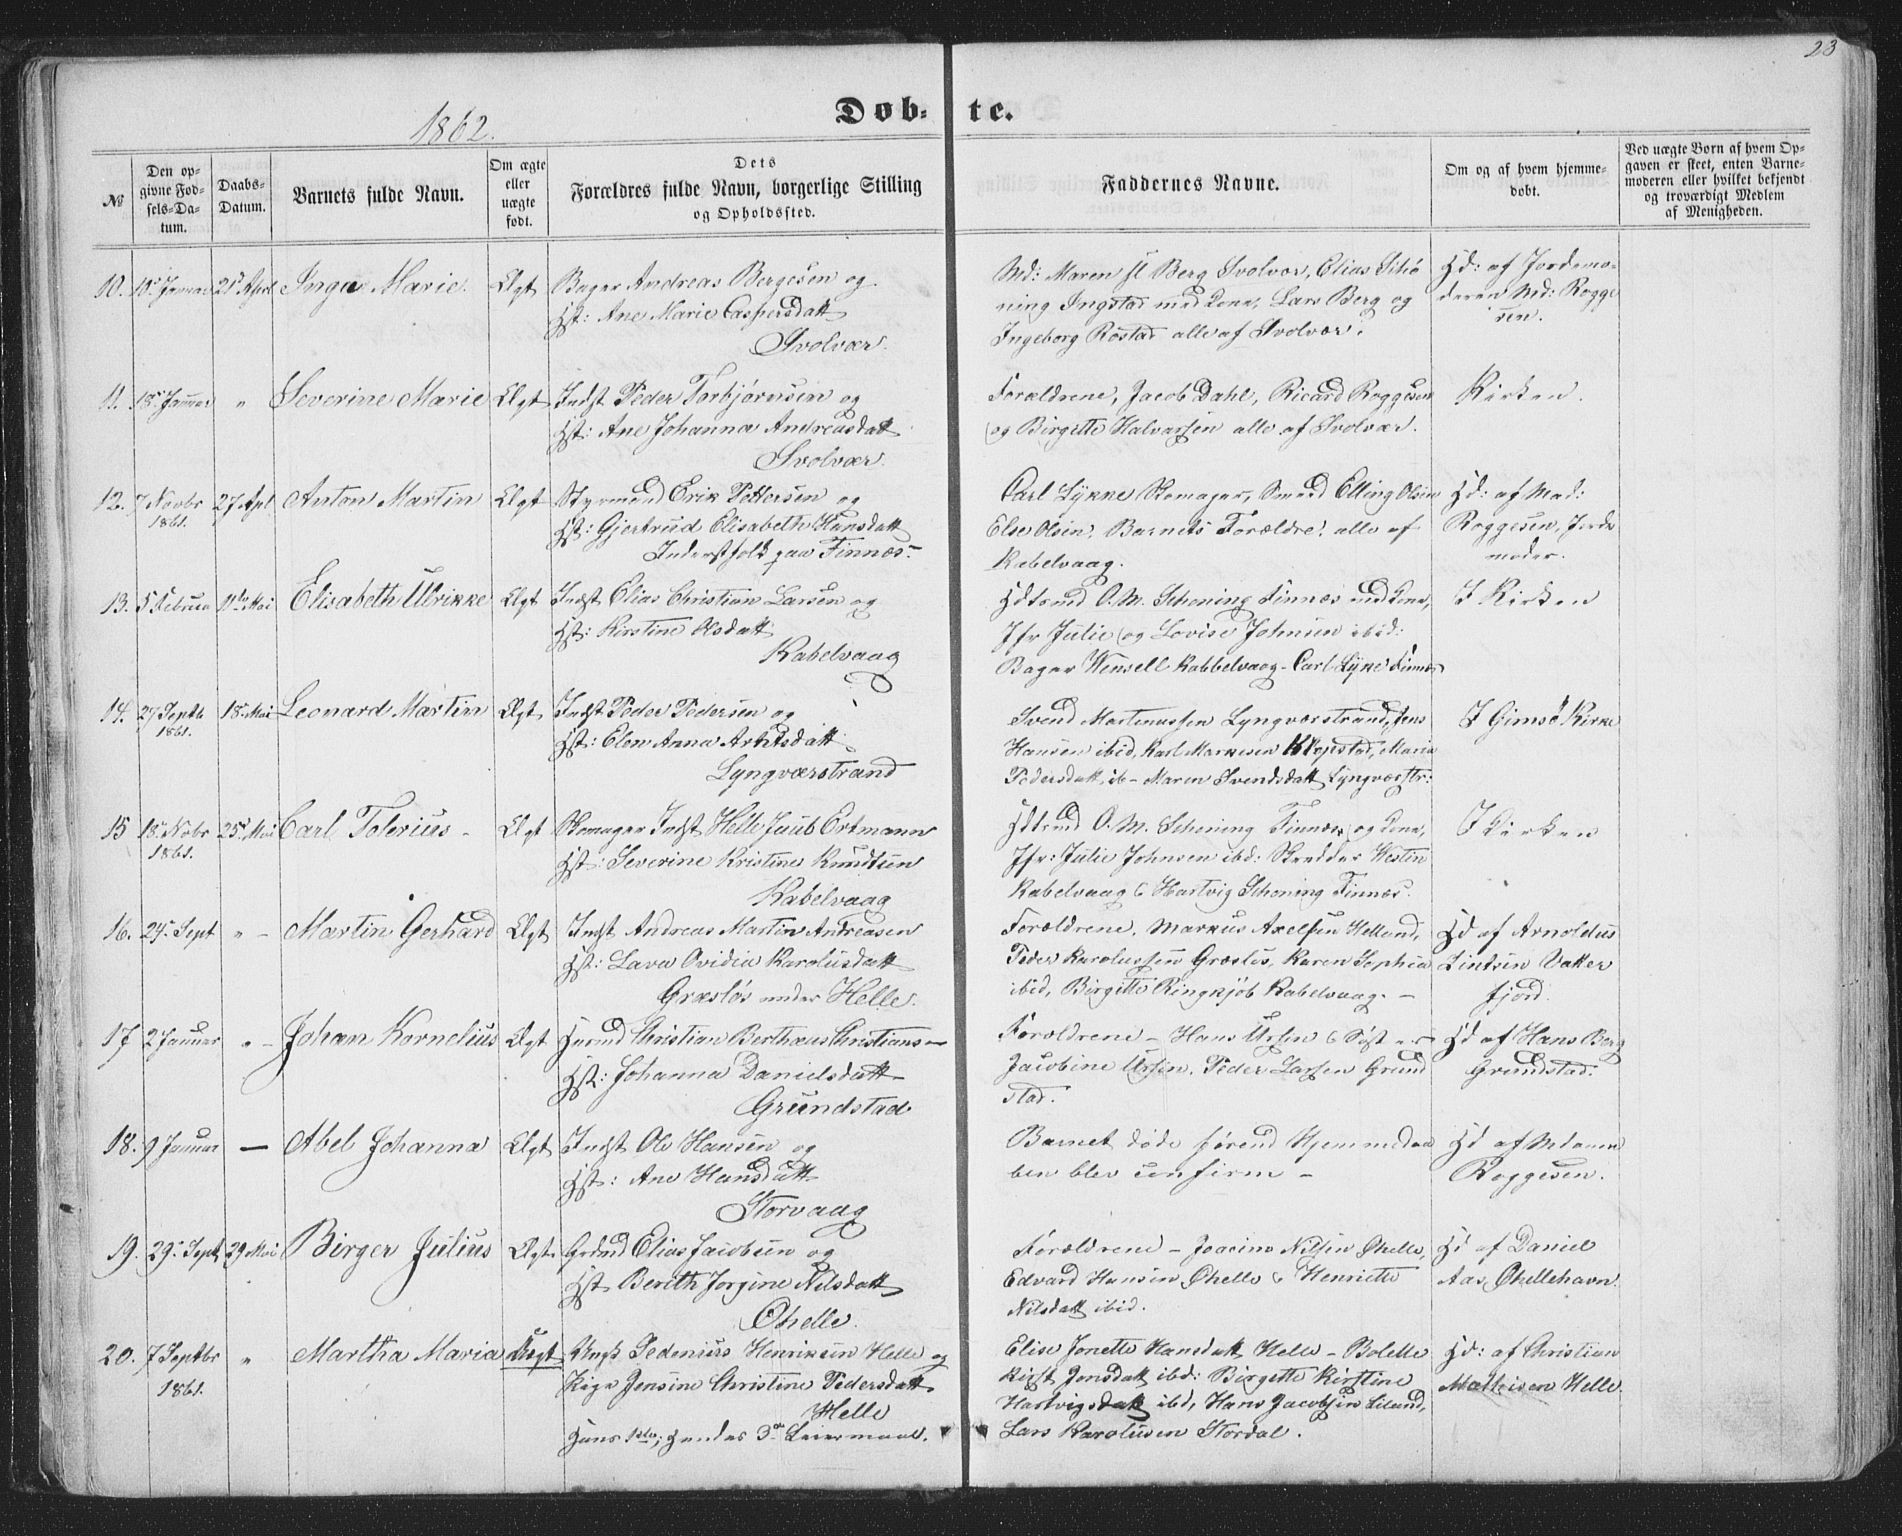 23
1862.
Døbte.
№
Den opgivne Fødsels-Datum.
Daabs-Datum.
Barnets fulde Navn.
Om ægte eller uægte født.
Dets Forældres fulde Navn, borgerlige Stilling og Opholdssted.
Faddernes Navne.
Om og af hvem hjemmedøbt.
Ved uægte Børn af hvem Opgaven er skeet, enten Barnemoderen eller hvilket bekjendt og troværdigt Medlem af Menigheden.
10. 10de Januar 21de April Inga Marie. Ægt
Bager Andreas Bergesen og
Hst: Ane Marie Caspersdatt
Svolvær.
Md: Maren Berg Svolvær, Elias Schø
ning Ingstad med Kone, Lars Berg og
Ingeborg Rostad alle af Svolvær.
Hd: af Jordemo-
deren Md: Rogge
sen.
11. 18de Januar " Severine Marie Ægt
Indst Peder Torbjørnsen og
Hst: Ane Johanna Andreasdatt
Svolvær.
Forældrene, Jacob Dahl, Ricard Roggesen
og Birgitte Halvorsen alle af Svolvær.
Kirken.
12. 7 Novbr 1861. 27 Apl Anton Martin Ægt
Styrmand Erik Pettersen og
Hst: Gjertrud Elisabeth Hansdatt
Inderstfolk paa Finnæs.-
Carl Lykke Skomager, Smed Elling Olsen
Else Olsen. Barnets Forældre. alle af
Kabelvaag.
Hd: af Mad:
Roggesen, Jorde
moder.
13. 5 Februar 11te Mai Elisabeth Ulrikke Ægt
Indst Elias Christian Larsen og
Hst: Kirstine Olsdatt
Kabelvaag
O. M. Schøning Finnæs med Kone,
Jfr Julie og Lovise Johnsen ibid:
Bager Wensell Kabbelvaag - Carl Lykke Finnæs
I Kirken
14. 27 Septb 1861. 18de Mai Leonard Martin Ægt
Indst Peder Pedersen og
Hst: Elen Anna Arntsdatt
Lyngværstrand
Svend Martinussen Lyngværstrand, Jens
Hansen ibid, Karl Markusen Klepstad, Maria
Pedersdatt ib - Maren Svendsdatt Lyngværstr:
I Gimsø Kirke
15 18de Nobr 1861. 25de Mai Carl Tolerius - Ægt
Skomager Indst Helle Juub Ortmann
Hst: Severine Kristine Knudsen
Kabelvaag
O. M. Schøning Finnæs og Kone,
Jfr: Julie Johnsen ibd: Skredder Westin
Kabelvaag & Hartvig Schøning Finnæs.
I Kirken
16. 24de Sept " - Martin Gerhard Ægt
Indst Andreas Martin Andreasen
Hst: Lava Ovidia Karolusdatt
Græsløs under Helle.
Forældrene, Markus Axelsen Helland,
Peder Karolussen Græsløs, Karen Sophia
ibid, Birgitte Ringkjøb Kabelvaag. -
Hd af Arnoldus
Lintsen Vatter
fjord.
17 2 Januar " - Johan Kornelius Ægt
Christian Berthæus Christians-
Hst: Johanna Danielsdatt
Grundstad
Forældrene - Hans Ursin & Søst -
Jacobine Ursin, Peder Larsen Grund
stad.
Hd af Hans Berg
Grundstad.
18. 9 Januar - Abel Johanna Ægt
Indst Ole Hansen og
Hst: Ane Hansdatt
Storvaag
Barnet døde førend Hjemmedaa
ben blev confirm -
Hd af Madame
Roggesen.
19. 29de Sept 29 Mai Birger Julius Ægt.
Grdmd Elias Jacobsen og
Hst Berith Jorgine Nilsdatt
Øhelle.
Forældrene - Joacim Nilsen Øhelle,
Edvard Hansen Øhelle & Henriette
Nilsdatt ibid.
Hd af Daniel
Aas, Øhellehavn.
20. 7 Septbr 1861. " Martha Maria Uægt
Ungk Pedenius Henriksen Helle og
Piga Jensine Christine Pedersdatt
Helle
Hans 1ste, Hendes 3de Leiermaal.
Elise Jonette Hansdatt Helle - Bolette
Kirst Jonsdatt ibd: Birgitte Kirstine
Hartvigsdatt ibd, Hans Jacobsen Liland,
Lars Karolusen Stordal.
Hd: af Christian
Mathisen Helle